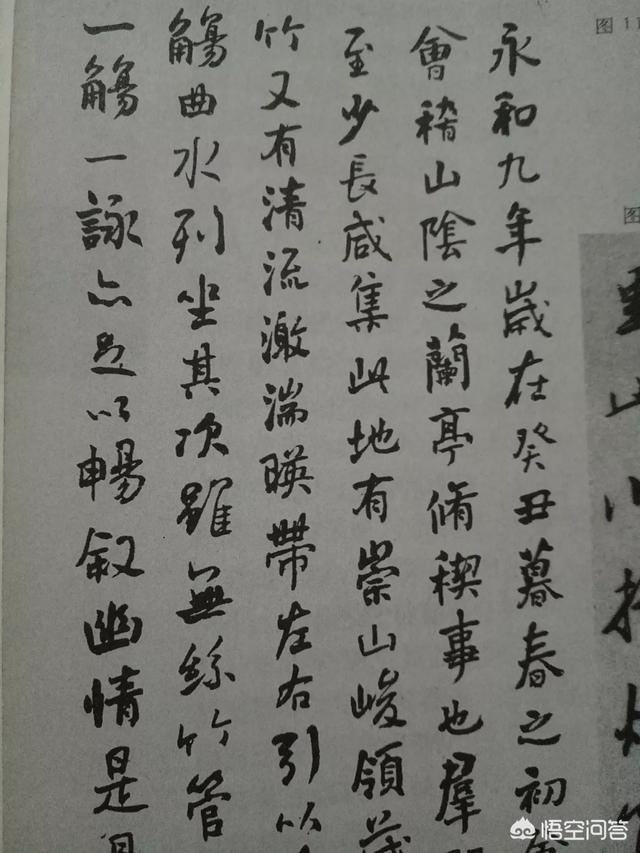 图 11
图
永和九年歲在癸丑暮春之初
會稽山陰之蘭亭脩稧事也羣
至少長咸集此地有崇山峻領茂
竹又有清流激湍暎帶左右引以
觴曲水列坐其次雖無絲竹管
一觴一詠亦足以暢敘幽情是
悟空问答